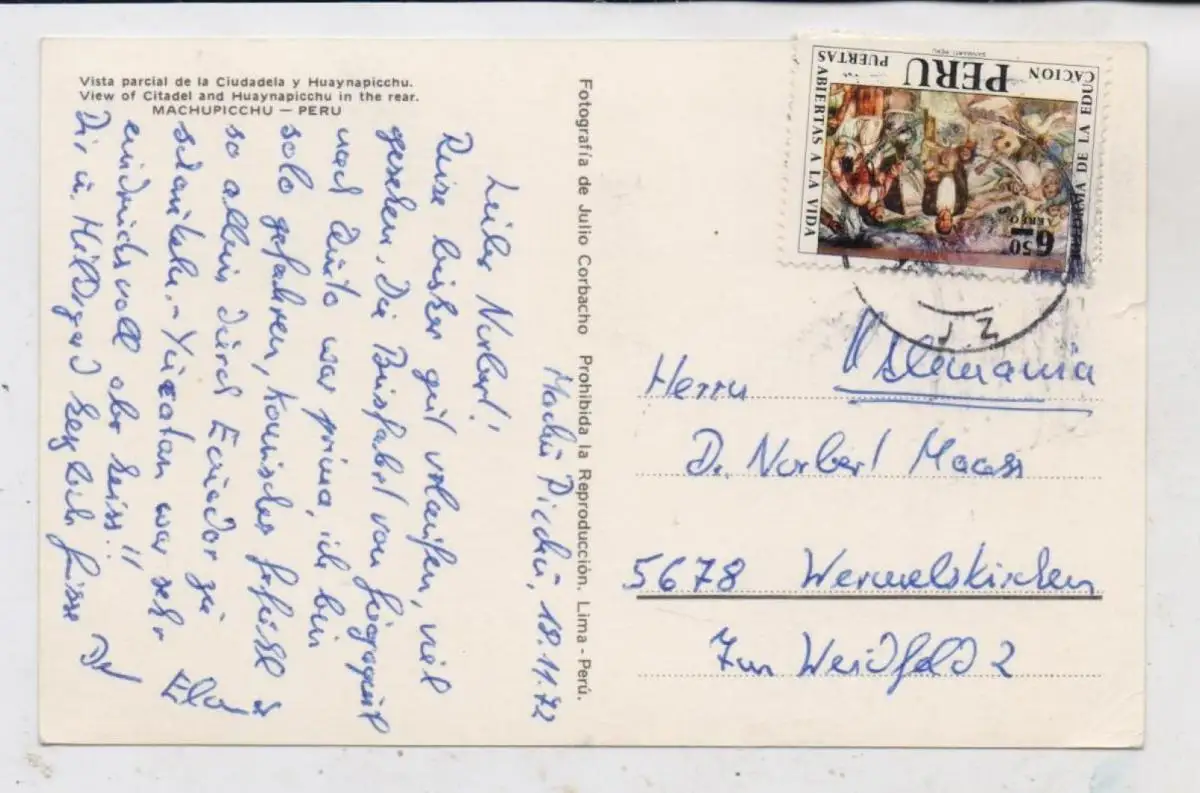 Vista parcial de la Ciudadela y Huaynapicchu.
View of Citadel and Huaynapicchu in the rear.
MACHUPICCHU — PERU
Machu Picchu, 18.11.72
Lieber Norbert!
Reise bisher gut verlaufen, viel
gesehen. Die Busfahrt von Guayaquil
nach Quito war prima, ich bin
solo gefahren, komisches Gefühl
so allein durch Ecuador zu
schaukeln. - Yucatan war sehr
eindrucksvoll aber heiss!!
Dir u. Hildigard herzliche Grüsse
Fotografía de Julio Corbacho Prohibida la Reproducción. Lima - Perú.
PERU
PUERTAS ABIERTAS A LA VIDA
REFORMA DE LA EDUCACION
6.50
AEREO
Alemania
Herrn
Dr. Norbert Maass
5678 Wermelskirchen
Zum Weidfeld 2